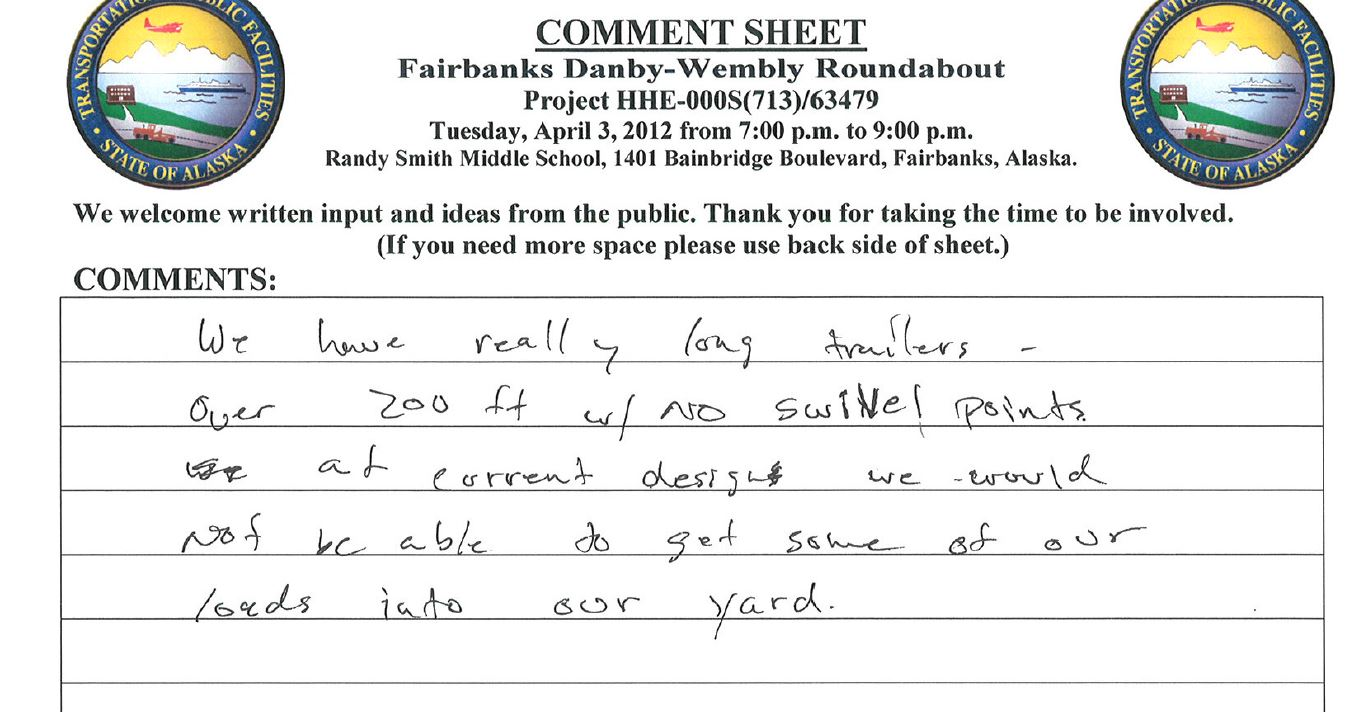 TRANSPORTATION PUBLIC FACILITIES
STATE OF ALASKA
TRANSPORTATION PUBLIC FACILITIES
STATE OF ALASKA
COMMENT SHEET
Fairbanks Danby-Wembly Roundabout
Project HHE-000S(713)/63479
Tuesday, April 3, 2012 from 7:00 p.m. to 9:00 p.m.
Randy Smith Middle School, 1401 Bainbridge Boulevard, Fairbanks, Alaska.
We welcome written input and ideas from the public. Thank you for taking the time to be involved.
(If you need more space please use back side of sheet.)
COMMENTS:
We have really long trailers -
Over 200 ft w/ NO swivel points
at current design we would
Not be able to get some of our
loads into our yard.